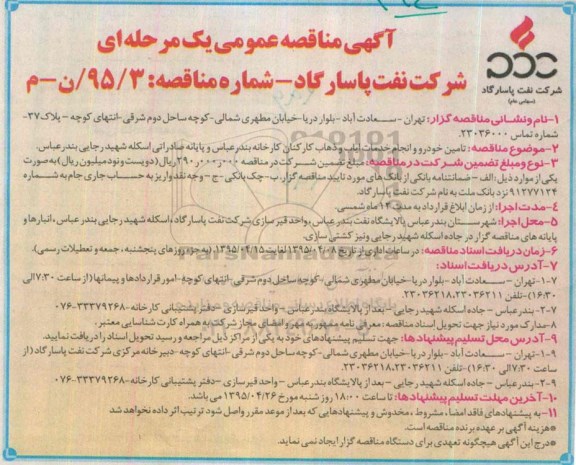 آگهی مناقصه عمومی یک مرحله‌ای
شرکت نفت پاسارگاد - شماره مناقصه: ۹۵/۳/ن-م
شرکت نفت پاسارگاد
(سهامی عام)
۱-نام و نشانی مناقصه گزار: تهران -سعادت آباد -بلوار دریا -خیابان مطهری شمالی -کوچه ساحل دوم شرقی -انتهای کوچه - پلاک ۳۷-
شماره تماس ۲۳۰۳۶۰۰۰
۲-موضوع مناقصه: تامین خودرو و انجام خدمات ایاب و ذهاب کارکنان کارخانه بندرعباس و پایانه صادراتی اسکله شهید رجایی بندرعباس.
۳-نوع و مبلغ تضمین شرکت در مناقصه: مبلغ تضمین شرکت در مناقصه ۲۹۰٫۰۰۰٫۰۰۰ریال (دویست و نود میلیون ریال) به صورت
یکی از موارد ذیل: الف - ضمانتنامه بانکی از بانک‌های مورد تایید مناقصه گزار. ب -چک بانکی -ج - وجه نقد واریز به حساب جاری جام به شماره
۹۱۲۷۷۱۲۴ نزد بانک ملت به نام شرکت نفت پاسارگاد.
۴-مدت اجرا: از زمان ابلاغ قرارداد به مدت ۱۲ماه شمسی.
۵-محل اجرا: شهرستان بندرعباس پالایشگاه نفت بندرعباس، واحد قیرسازی شرکت نفت پاسارگاد، اسکله شهید رجایی بندرعباس، انبارها و
پایانه های مناقصه گزار در جاده اسکله شهید رجایی و نیز کشتی سازی
۶-زمان دریافت اسناد مناقصه: در ساعات اداری از تاریخ ۱۳۹۵/۰۴/۰۸ لغایت ۱۳۹۵/۰۴/۱۵ (به جز روزهای پنجشنبه، جمعه و تعطیلات رسمی).
۷-آدرس دریافت اسناد:
۷-۱-تهران - سعادت آباد -بلوار دریا -خیابان مطهری شمالی -کوچه ساحل دوم شرقی -انتهای کوچه -امور قراردادها و پیمانها (از ساعت ۷:۳۰الی
۱۶:۳۰)-تلفن ۲۳۰۳۶۲۱۱، ۲۳۰۳۶۲۱۸
۷-۲-بندرعباس -جاده اسکله شهید رجایی - بعد از پالایشگاه بندرعباس - واحد قیرسازی -دفتر پشتیبانی کارخانه -۳۳۳۷۹۲۶۸-۰۷۶
۸-مدارک مورد نیاز جهت تحویل اسناد مناقصه: معرفی نامه ممهور به مهر و امضای مجاز شرکت به همراه کارت شناسایی معتبر.
۹-آدرس محل تسلیم پیشنهادها: جهت تسلیم پیشنهادهای خود به یکی از مراکز ذیل مراجعه و رسید تحویل اسناد را دریافت نمایید.
۹-۱-تهران - سعادت آباد -بلوار دریا -خیابان مطهری شمالی -کوچه ساحل دوم شرقی -انتهای کوچه -دبیرخانه مرکزی شرکت نفت پاسارگاد (از
ساعت ۷:۳۰الی ۱۶:۳۰)-تلفن ۲۳۰۳۶۲۱۱، ۲۳۰۳۶۲۱۸
۹-۲-بندرعباس -جاده اسکله شهید رجایی - بعد از پالایشگاه بندرعباس - واحد قیرسازی -دفتر پشتیبانی کارخانه -۳۳۳۷۹۲۶۸-۰۷۶
۱۰-آخرین مهلت تسلیم پیشنهادها: تا ساعت ۱۸:۰۰ روز شنبه مورخ ۱۳۹۵/۰۴/۲۶ می باشد.
۱۱-به پیشنهادهای فاقد امضا، مشروط، مخدوش و پیشنهادهایی که بعد از موعد مقرر واصل شود ترتیب اثر داده نخواهد شد
*هزینه آگهی بر عهده برنده مناقصه است.
*درج این آگهی هیچگونه تعهدی برای دستگاه مناقصه گزار ایجاد نمی نماید.